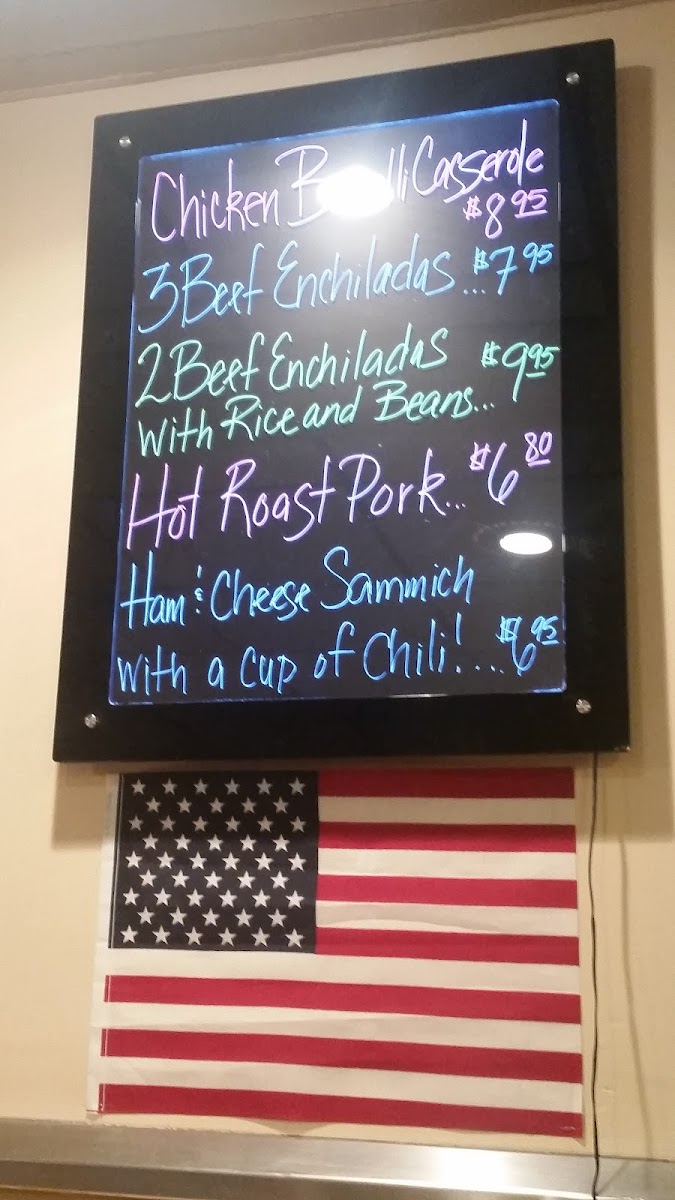 Chicken Casserole
$8 95
3 Beef Enchiladas...$7 95
2 Beef Enchiladas $9 95
with Rice and Beans...
Hot Roast Pork...$6 80
Ham & Cheese Sammich
with a cup of Chili!...$6 95